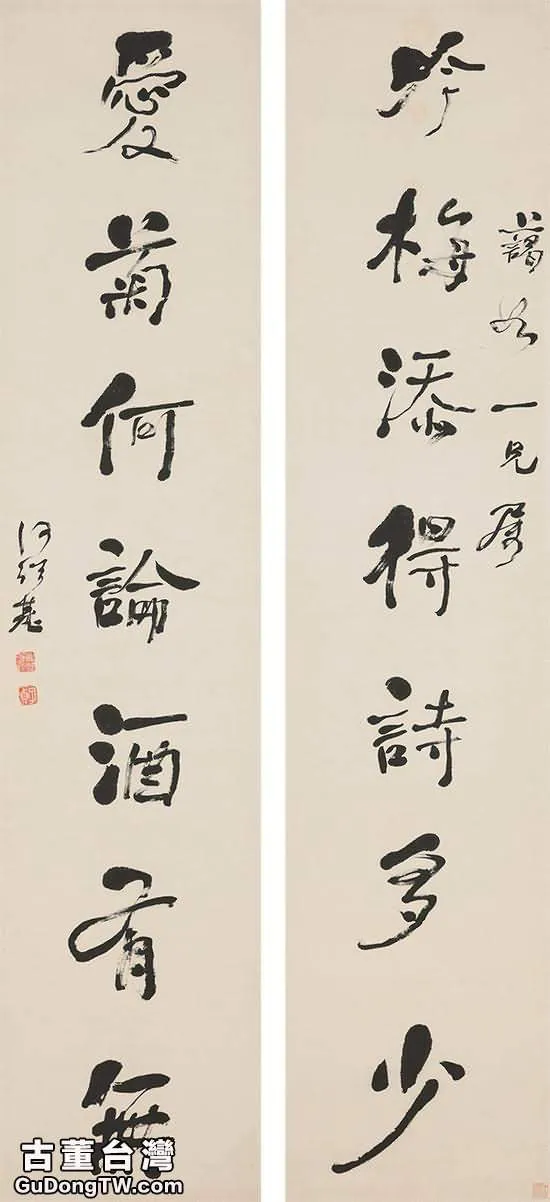 吟梅添得詩多少
一兄屬
愛菊何論酒有無
何紹基
古董台灣
GuDongTW.com